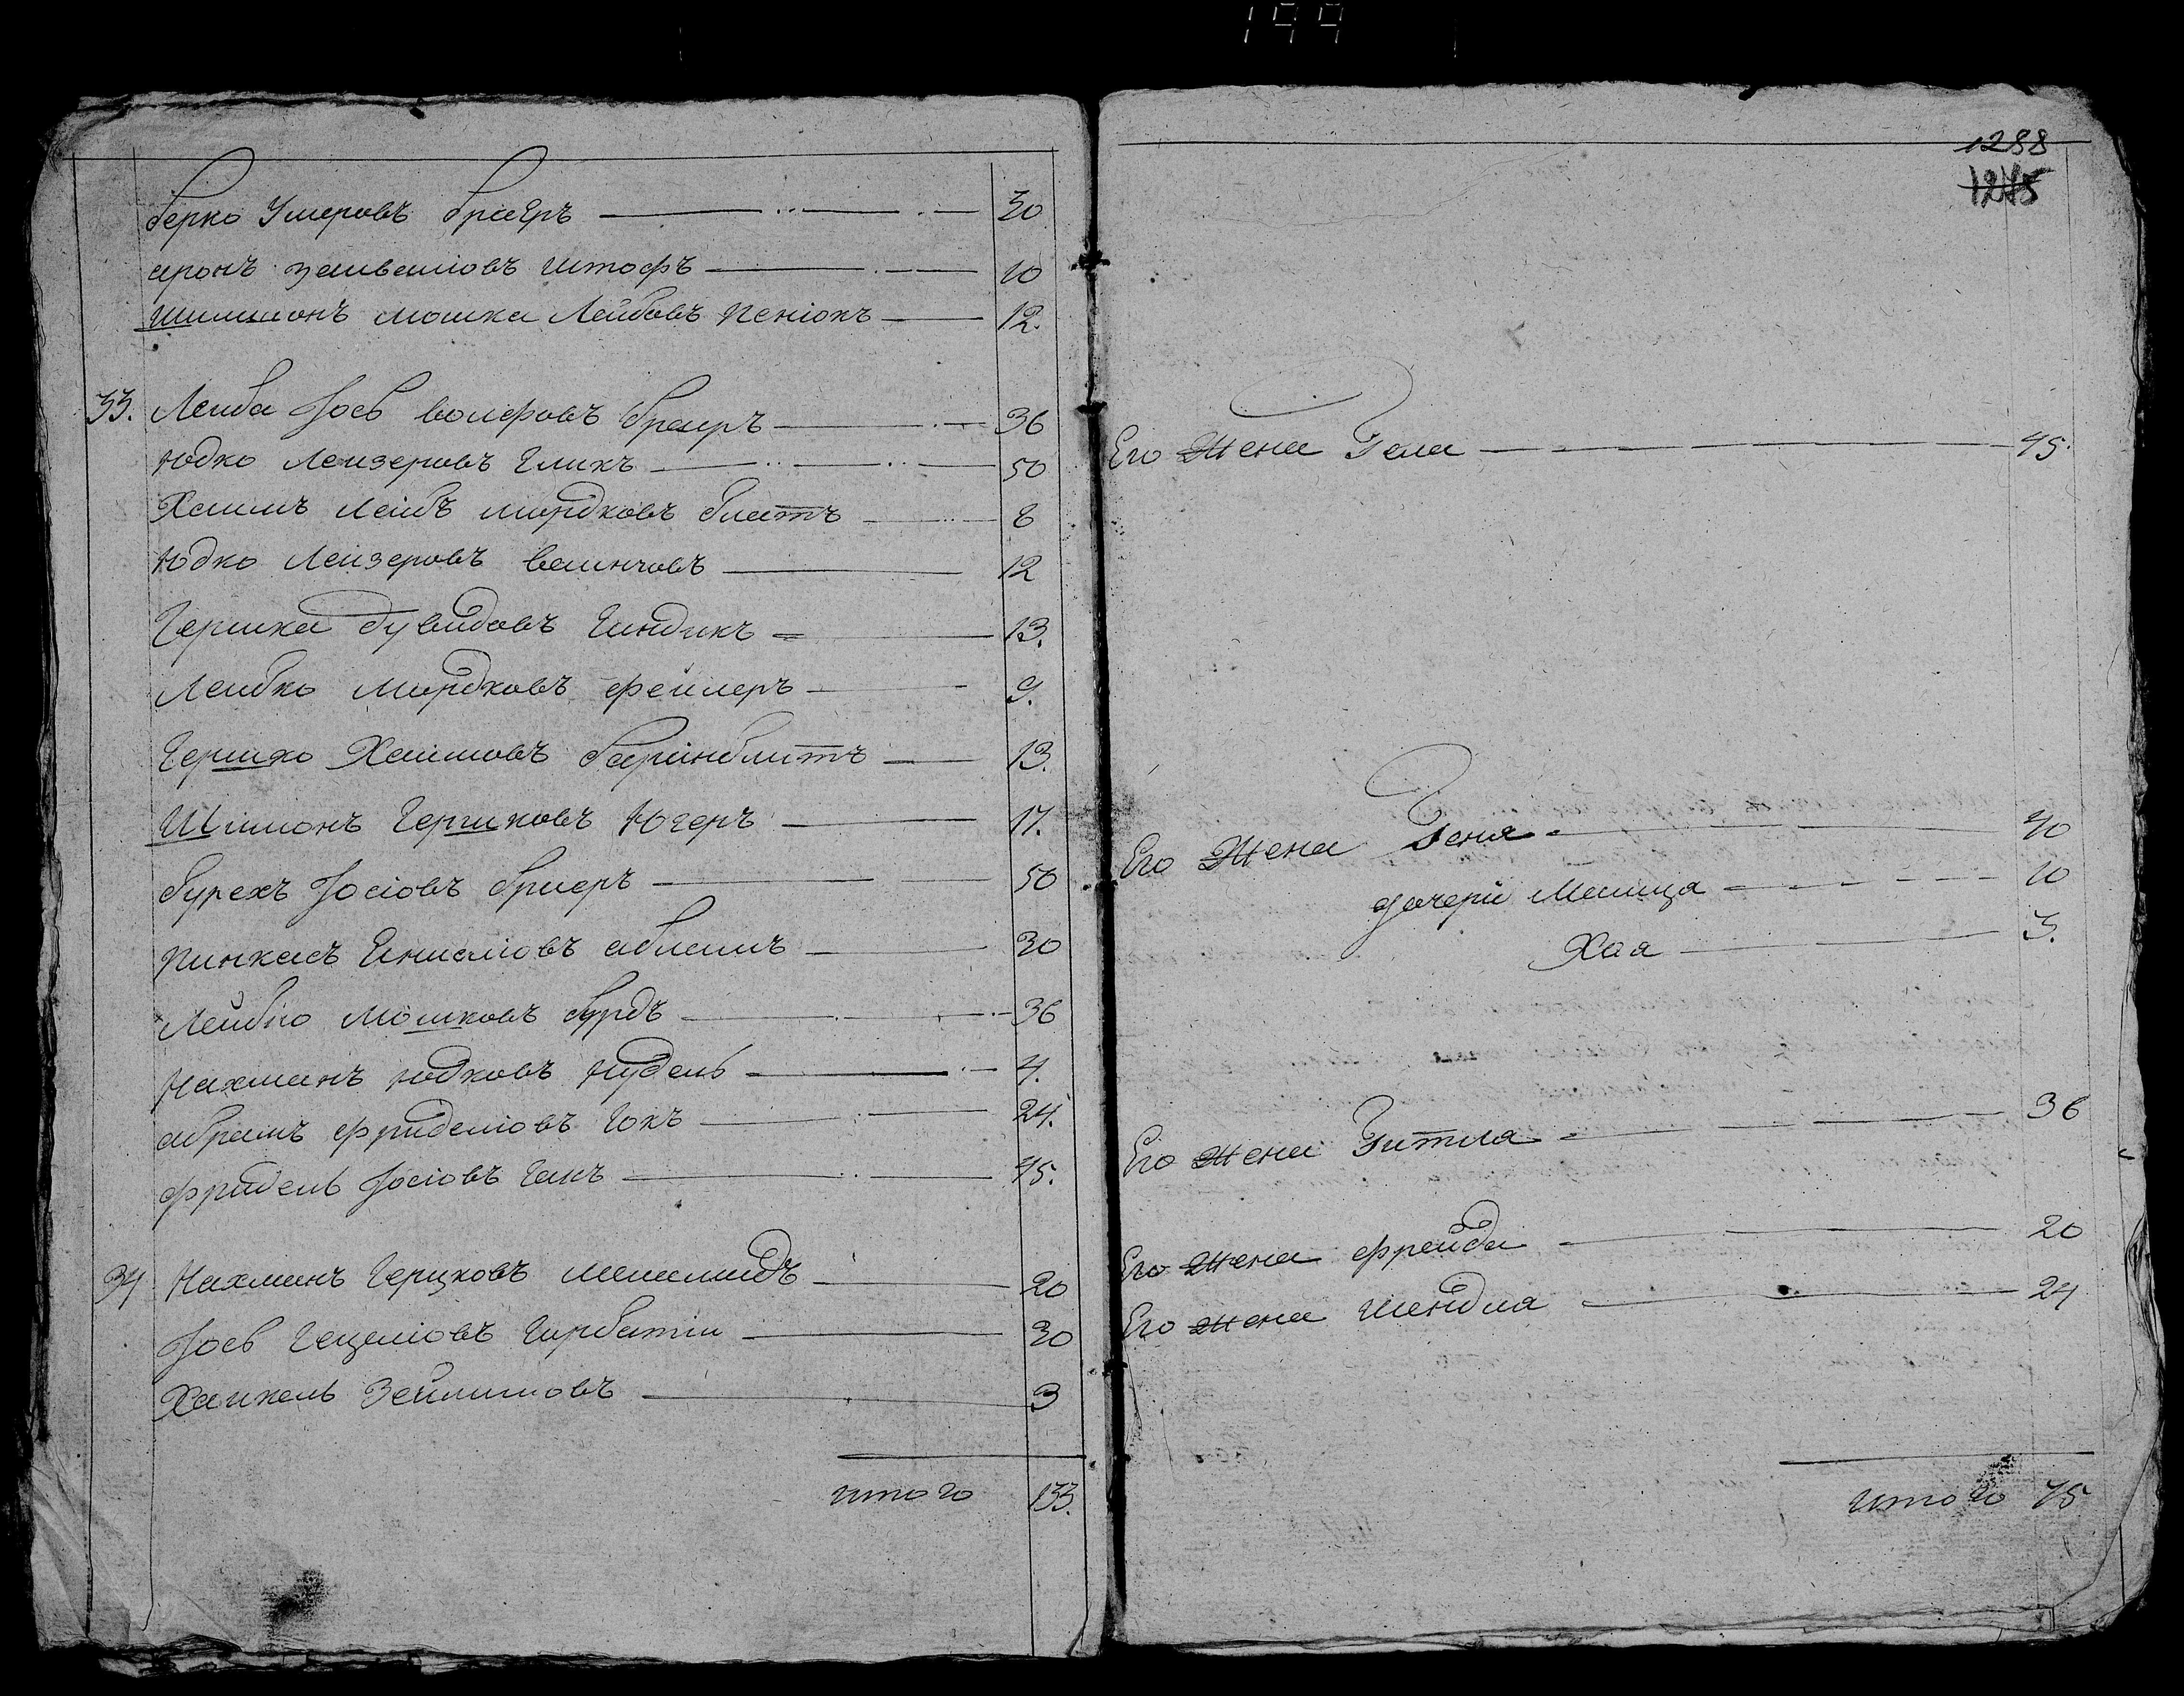 199
Берко Умеровъ Браеръ 30
аронъ Залвеліовъ Штофъ 10
Шлимонъ Мошка Лейбовъ Пеніокъ 12.
33. Леиба Іось волфовъ браеръ 36
Юдко Леизеровъ Гликъ 50
Хаимъ Леибъ мордковъ блатъ 8
Юдко Леизеровъ 12
Гершка дувидовъ Гиндикъ 13.
Леибко Мордковъ фейлеръ 9.
Гершко Хаимовъ 13.
Шимонъ Гершковъ Югеръ 17.
бурехъ Іосіовъ бриеръ 50
Пинкасъ абрамъ 30
Лейбко Мошковъ бурдъ 36
Нахманъ юдковъ Нудель 4.
абрамъ фриделіовъ Гокъ 24.
фридель Іосіовъ Гакъ 45.
34 Нахманъ Герцковъ меламидъ 20
Іось Гецеліовъ Горбатіи 30
Хаикель Зейлиховъ 3
итого 133.
1288
1245
Его Жена Гела 45.
Его Жена Геня 40
дочери Малица 10
Хая 3.
Его жена Гитля 36
Его жена фрейда 20
Его жена Шендля 24
итого 75